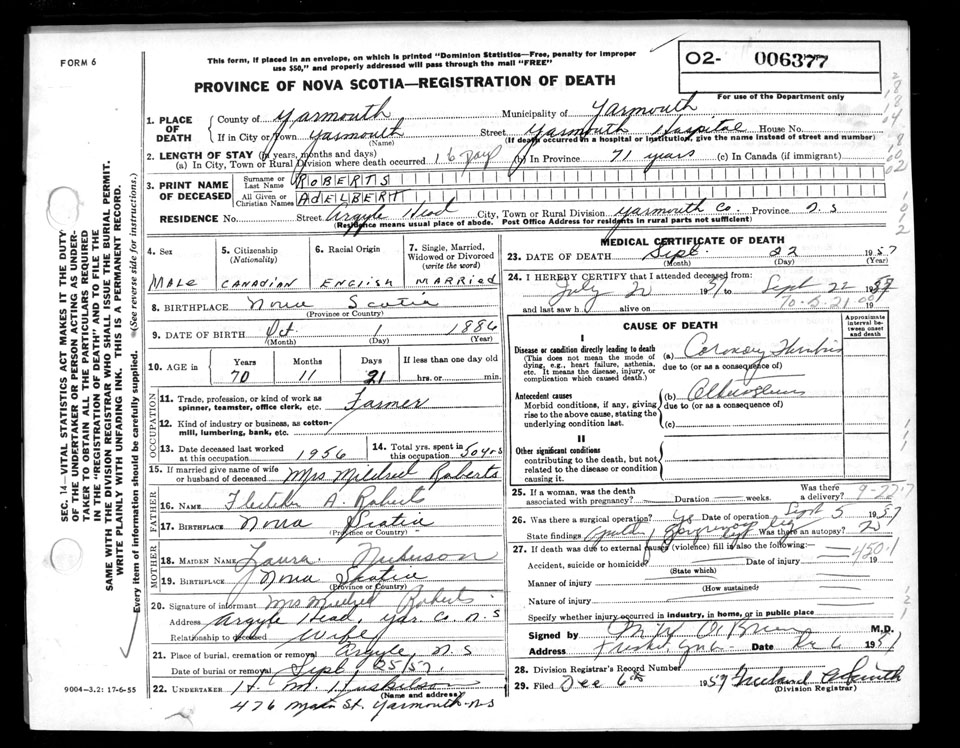 FORM 6
This form, if placed in an envelope, on which is printed "Dominion Statistics—Free, penalty for improper
use $50," and properly addressed will pass through the mail "FREE"
PROVINCE OF NOVA SCOTIA—REGISTRATION OF DEATH
02- 006377
For use of the Department only
1. PLACE OF DEATH
County of Yarmouth Municipality of Yarmouth
If in City or Town Yarmouth (Name) Street Yarmouth Hospital House No.
(If death occurred in a hospital or institution, give the name instead of street and number)
2. LENGTH OF STAY (in years, months and days)
(a) In City, Town or Rural Division where death occurred 16 days (b) In Province 71 years (c) In Canada (if immigrant)
3. PRINT NAME OF DECEASED
Surname or Last Name ROBERTS
All Given or Christian Names ADELBERT
RESIDENCE No. Street Argyle Head City, Town or Rural Division Yarmouth Co. Province N.S
(Residence means usual place of abode. Post Office Address for residents in rural parts not sufficient)
4. Sex
MALE
5. Citizenship (Nationality)
CANADIAN
6. Racial Origin
ENGLISH
7. Single, Married, Widowed or Divorced (write the word)
MARRIED
8. BIRTHPLACE Nova Scotia
(Province or Country)
9. DATE OF BIRTH Oct. 1 1886
(Month) (Day) (Year)
10. AGE in Years Months Days If less than one day old
70 11 21 hrs. or min.
OCCUPATION
11. Trade, profession, or kind of work as spinner, teamster, office clerk, etc. Farmer
12. Kind of industry or business, as cotton-mill, lumbering, bank, etc.
13. Date deceased last worked at this occupation 1956
14. Total yrs. spent in this occupation 50 yrs
15. If married give name of wife or husband of deceased Mrs Mildred Roberts
FATHER
16. NAME Fletcher A. Roberts
17. BIRTHPLACE Nova Scotia
(Province or Country)
MOTHER
18. MAIDEN NAME Laura Nickerson
19. BIRTHPLACE Nova Scotia
(Province or Country)
20. Signature of informant Mrs Mildred Roberts
Address Argyle Head, Yar. Co. N.S
Relationship to deceased Wife
21. Place of burial, cremation or removal Argyle, N.S
Date of burial or removal Sept. 25/57.
22. UNDERTAKER H. M.
(Name and address)
476 Main St. Yarmouth N.S
9004—3.2: 17-6-55
MEDICAL CERTIFICATE OF DEATH
23. DATE OF DEATH Sept. 22 1957
(Month) (Day) (Year)
24. I HEREBY CERTIFY that I attended deceased from:
July 22 1957 Sept 22 1957
and last saw h alive on 19
70-5-21
CAUSE OF DEATH
Approximate interval between onset and death
I
Disease or condition directly leading to death
(This does not mean the mode of dying, e.g., heart failure, asthenia, etc. It means the disease, injury, or complication which caused death.)
(a) Coronary
due to (or as a consequence of)
Antecedent causes
Morbid conditions, if any, giving rise to the above cause, stating the underlying condition last.
(b)
due to (or as a consequence of)
(c)
II
Other significant conditions
contributing to the death, but not related to the disease or condition causing it.
25. If a woman, was the death associated with pregnancy? Duration weeks. Was there a delivery?
9-22-7
26. Was there a surgical operation? Yes Date of operation Sept 5 1957
State findings leg Was there an autopsy? no
27. If death was due to external causes (violence) fill in also the following:—
450.1
Accident, suicide or homicide? Date of injury 19
(State which)
Manner of injury
(How sustained)
Nature of injury
Specify whether injury occurred in industry, in home, or in public place
Signed by M W O'Brien M.D.
Address Date Dec 6 1957
28. Division Registrar's Record Number
29. Filed Dec 6th 1957 Smith
(Division Registrar)
SEC. 14—VITAL STATISTICS ACT MAKES IT THE DUTY
OF THE UNDERTAKER OR PERSON ACTING AS UNDER-
TAKER TO OBTAIN ALL THE PARTICULARS REQUIRED
IN THE "REGISTRATION OF DEATH" AND TO FILE THE
SAME WITH THE DIVISION REGISTRAR WHO SHALL ISSUE THE BURIAL PERMIT.
WRITE PLAINLY WITH UNFADING INK. THIS IS A PERMANENT RECORD.
Every item of information should be carefully supplied. (See reverse side for instructions.)